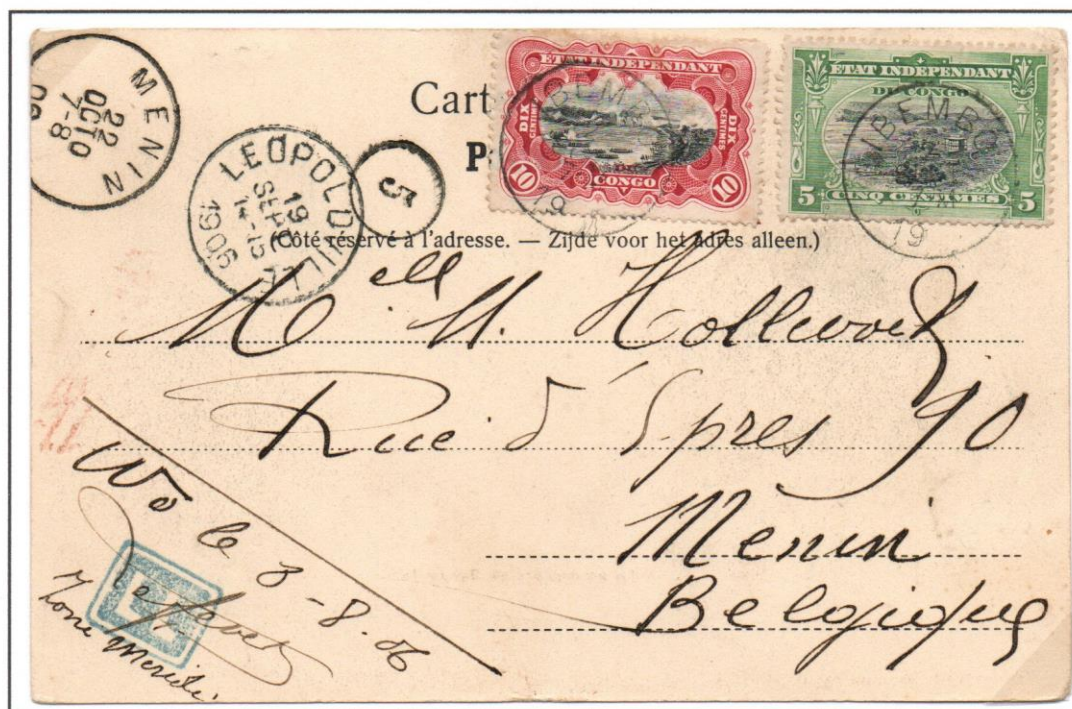 MENIN
22
OCTO
7-8
LEOPOLDVILLE
19
SEPT
1906
5
Cart
P
ETAT INDEPENDANT
DIX
CENTIMES
DIX
CENTIMES
10 CONGO 10
ETAT INDEPENDANT
DU CONGO
5 CINQ CENTIMES 5
IBEMBO
IBEMBO
19
19
(Côté réservé à l'adresse. — Zijde voor het adres alleen.)
Mell M.
Rue d'Ypres 90
Menin
Belgique
le 3-8.06
Zone